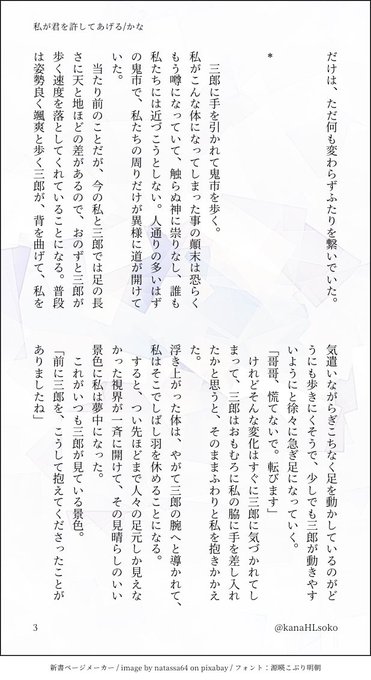 私が君を許してあげる/かな
だけは、ただ何も変わらずふたりを繋いでいた。
*
三郎に手を引かれて鬼市を歩く。
私がこんな体になってしまった事の顛末は恐らく
もう噂になっていて、触らぬ神に祟りなし、誰も
私たちには近づこうとしない。人通りの多いはず
の鬼市で、私たちの周りだけが異様に道が開けて
いた。
当たり前のことだが、今の私と三郎では足の長
さに天と地ほどの差があるので、おのずと三郎が
歩く速度を落としてくれていることになる。普段
は姿勢良く颯爽と歩く三郎が、背を曲げて、私を
気遣いながらぎこちなく足を動かしているのがど
うにも歩きにくそうで、少しでも三郎が動きやす
いようにと徐々に急ぎ足になっていく。
「哥哥、慌てないで。転びます」
けれどそんな変化はすぐに三郎に気づかれてし
まって、三郎はおもむろに私の脇に手を差し入れ
たかと思うと、そのままふわりと私を抱きかかえ
た。
浮き上がった体は、やがて三郎の腕へと導かれて、
私はそこでしばし羽を休めることになる。
すると、つい先ほどまで人々の足元しか見えな
かった視界が一斉に開けて、その見晴らしのいい
景色に私は夢中になった。
これがいつも三郎が見ている景色。
「前に三郎を、こうして抱えてくださったことが
ありましたね」
3
@kanaHLsoko
新書ページメーカー / image by natassa64 on pixabay / フォント：源暎こぶり明朝